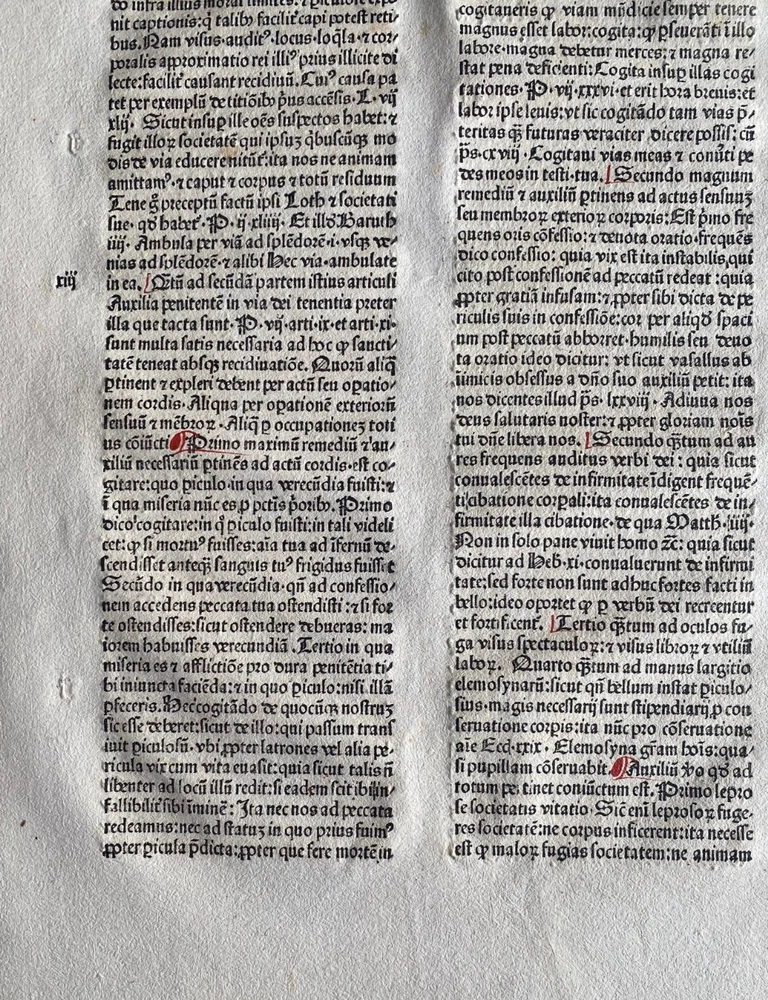 nit captionis:q̃ talib⁹ facilit̃ capi potest reti/
bus. Nam visus·audit⁹·locus·loq̃la·⁊ cor/
poralis approximatio rei illi⁹ prius illicite di
lecte:facilit̃ causant recidiuũ. Cui⁹ causa pa
tet per exemplũ de titiõib⁹ p̃us accẽsis. L·vij
xlij· Sicut insuꝑ ille oẽs suspectos habet:⁊
fugit illoꝝ societatẽ qui ipsuꝫ q̃buscũqꝫ mo
dis de via educere nitũt̃:ita nos ne animam
amittam⁹·⁊ caput ⁊ corpus ⁊ totũ residuum
Tene g̊ preceptũ factũ ipsi Loth ⁊ societati
sue· qd̕ habet̃·P· ij·xliiij· Et illd̕ Baruth
iiij· Ambula per viã ad splẽdorẽ·i·vsqꝫ ve/
nias ad splẽdorẽ·⁊ alibi Hec via·ambulate
xiij
in ea. Q̃tũ ad secũdã partem istius articuli
Auxilia penitentẽ in via dei tenentia preter
illa que tacta sunt·P·vij·arti·ix·et arti·xi·
sunt multa satis necessaria ad hoc ꝙ sancti/
tatẽ teneat absqꝫ recidiuatiõe. Quorũ aliq̃
ꝑtinent ⁊ expleri debent per actũ seu oꝑatio/
nem cordis·Aliqua per oꝑationẽ exteriorũ
sensuũ ⁊ mẽbroꝝ·Aliq̃ ꝑ occupationeꝫ toti
us cõiũcti Primo maximũ remediũ ⁊ au/
xiliũ necessariũ ꝑtinẽs ad actũ cordis·est co/
gitare:quo ꝑiculo·in qua verecũdia fuisti:⁊
ĩ qua miseria nũc es·ꝓ pctĩs p̃orib⁹·Primo
dico cogitare:in q̊ ꝑiculo fuisti:in tali videli
cet:ꝙ si mortu⁹ fuisses:aĩa tua ad ĩfernũ de/
scendisset anteqꝫ sanguis tu⁹ frigidus fuisset
Secũdo in qua verecũdia·qñ ad confessio/
nem accedens peccata tua ostendisti:⁊ si for
te ostendisses:sicut ostendere debueras: ma
iorem habuisses verecundiã.Tertio in qua
miseria es ⁊ afflictiõe pro dura penitẽtia ti/
bi iniuncta faciẽda:⁊ in quo ꝑiculo:nisi illã
ꝑfeceris. Hec cogitãdo de quocũqꝫ nostruꝫ
sic esse deberet:sicut de illo:qui passum trans
iuit ꝑiculosũ·vbi ꝓpter latrones vel alia pe/
ricula vix cum vita euasit:quia sicut talis ñ
libenter ad locũ illũ redit:si eadem scit ibi in/
fallibilit̃ sibi ĩminẽ: Ita nec nos ad peccata
redeamus:nec ad statuꝫ in quo prius fuim⁹
ꝓpter ꝑicula p̃dicta:ꝓpter que fere mortẽ in
cogitaueris ꝙ viam mũdicie semper tenere
magnus esset labor:cogita:ꝙ ꝑseuerãti ĩ illo
labore·magna debetur merces:⁊ magna re/
stat pena deficienti:Cogita insuꝑ illas cogi
tationes·P·vij·xxxvi·et erit hora breuis:et
labor ipse leuis:vt sic cogitãdo tam vias p̃/
teritas q̃ futuras veraciter dicere possis: cũ
p̃s·cxviij·Cogitaui vias meas ⁊ conũti pe
des meos in testi·tua. Secundo magnum
remediũ ⁊ auxiliũ ꝑtinens ad actus sensuuꝫ
seu membroꝝ exterioꝝ corporis:Est p̃mo fre
quens oris cõfessio:⁊ deuota oratio·frequẽs
dico confessio: quia vix est ita instabilis,qui
cito post confessionẽ ad peccatũ redeat:quia
ꝓpter gratiã infusam:⁊ ꝓpter sibi dicta de pe
riculis suis in confessiõe:cor per aliqd̕ spaci
um post peccatũ abhorret·humilis seu deuo
ta oratio ideo dicitur: vt sicut vasallus ab
inimicis obsessus a dño suo auxiliũ petit: ita
nos dicentes illud p̃s·lxxviij·Adiuua nos
deus salutaris noster:⁊ ꝓpter gloriam noĩs
tui dñe libera nos. Secundo q̃tum ad au
res frequens auditus verbi dei: quia sicut
conualescẽtes de infirmitate ĩdigent frequẽ/
ti cibatione corꝑali:ita conualescẽtes de in/
firmitate illa cibatione·de qua Matth·iiij·
Non in solo pane viuit homo ⁊c: quia sicut
dicitur ad Heb·xi·conualuerunt de infirmi
tate:sed forte non sunt adhuc fortes facti in
bello:ideo oportet ꝙ ꝑ verbũ dei recreentur
et fortificent̃. Tertio q̃tum ad oculos fu/
ga visus spectaculoꝝ:⁊ visus libroꝝ ⁊ vtiliũ
laboꝝ. Quarto q̃tum ad manus largitio
elemosynarũ:sicut qñ bellum instat ꝑiculo/
sius·magis necessarij sunt stipendiarij ꝓ con
seruatione corꝑis:ita nũc pro cõseruatione
aĩe Ecc̃i·xxix·Elemosyna gr̃am hoĩs:qua/
si pupillam cõseruabit Auxiliũ ꝟo qd̕ ad
totum pertinet coniũctum est. Primo lepro
se societatis vitatio·Sic eni leprosoꝝ fuge/
res societatẽ:ne corpus inficerent:ita necesse
est ꝙ maloꝝ fugias societatem:ne animam